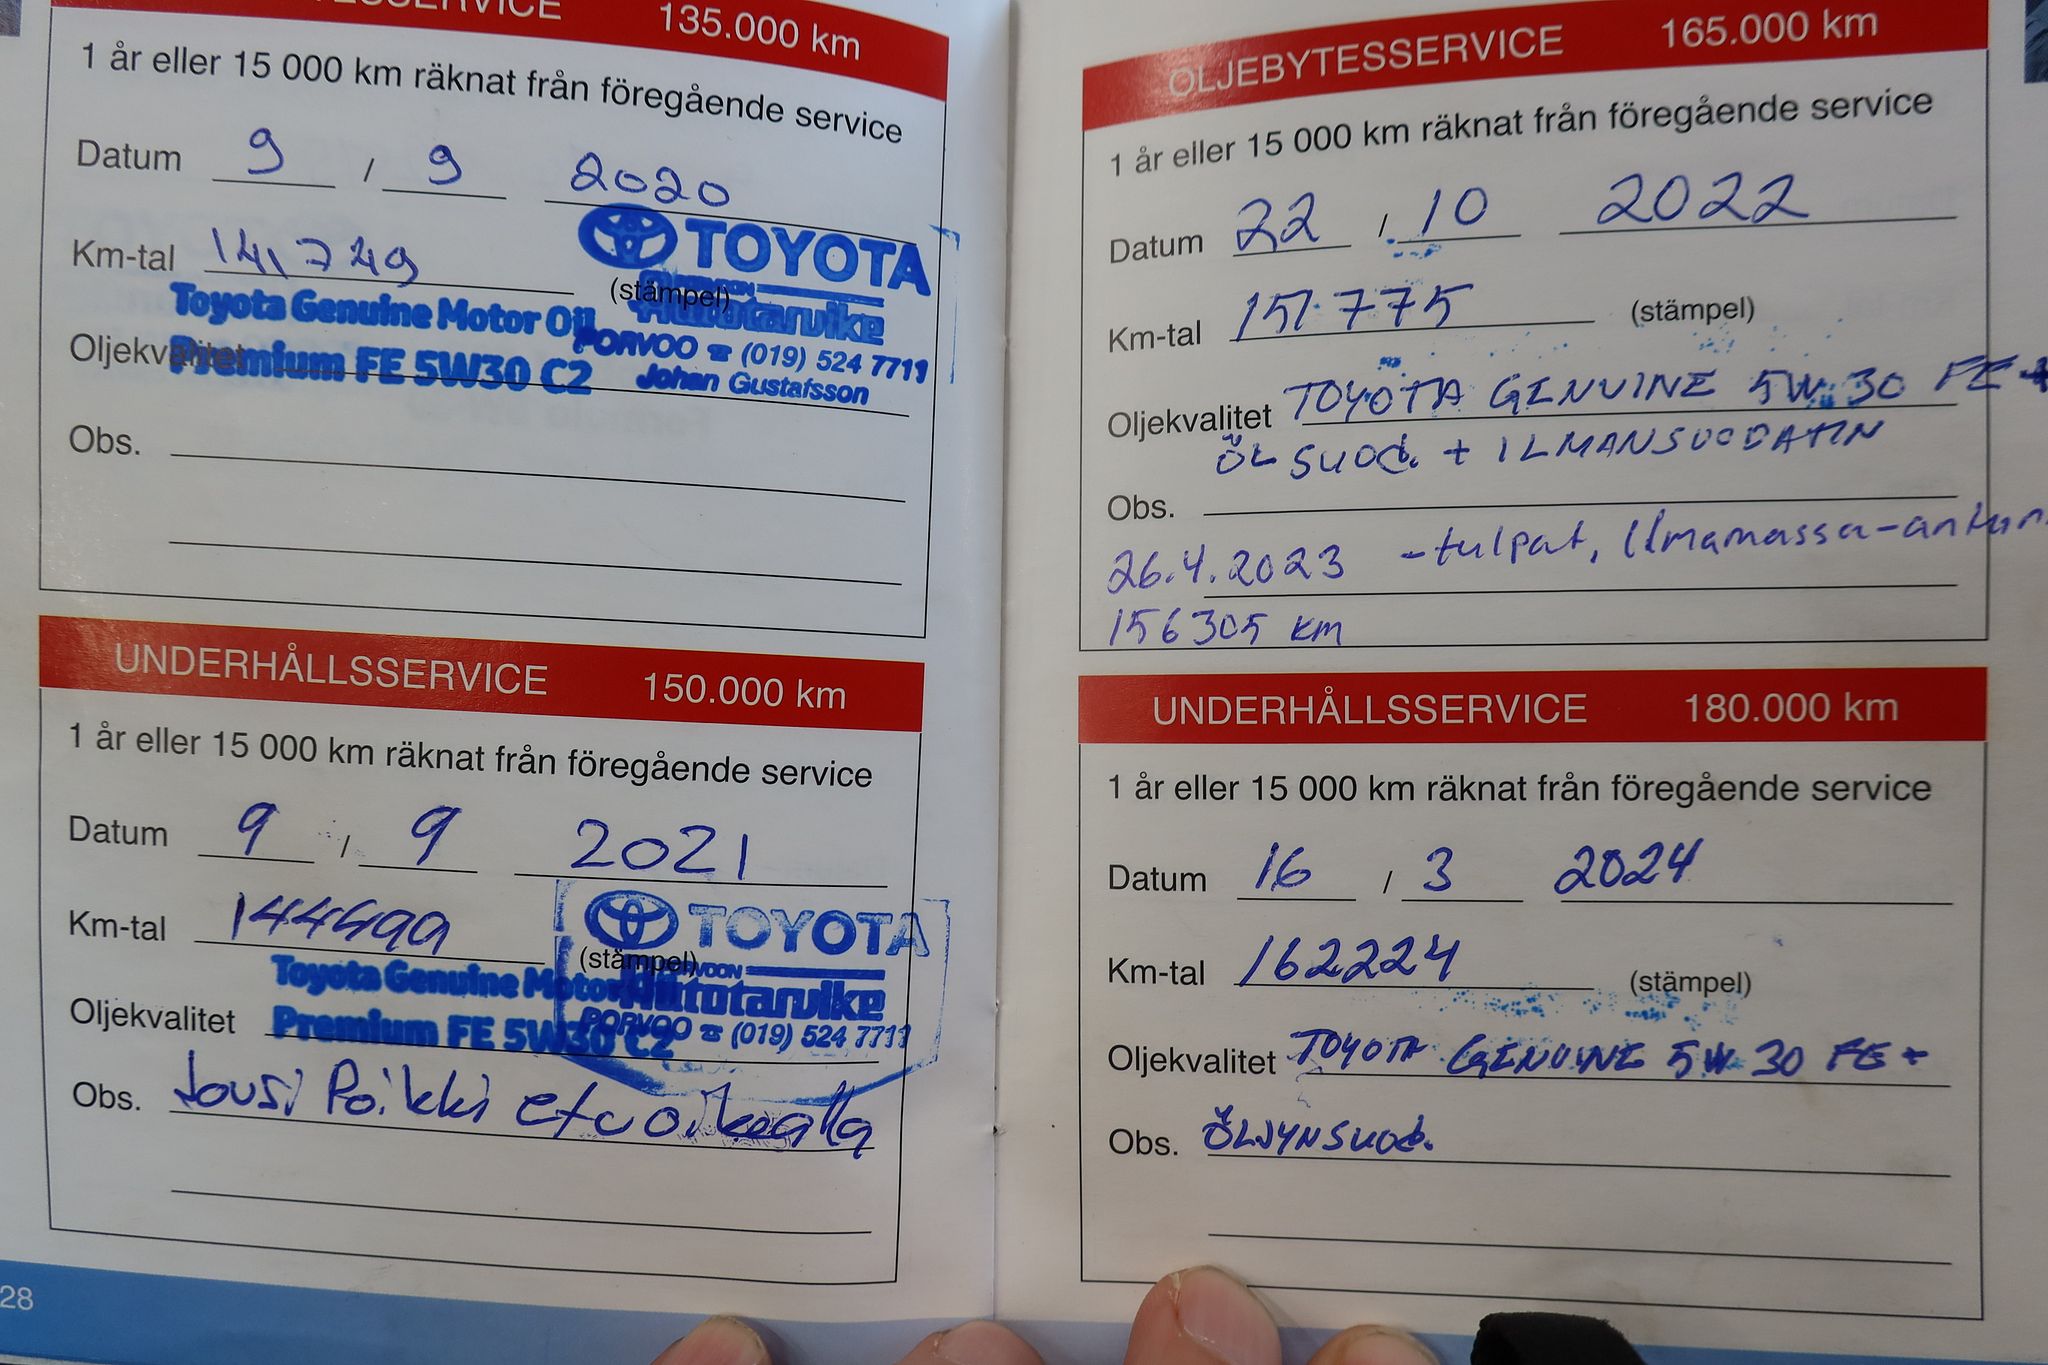 135.000 km
1 år eller 15 000 km räknat från föregående service
Datum 9 / 9 2020
Km-tal 141 749 (stämpel)
TOYOTA
Autotarvike
PORVOO ☎ (019) 524 7711
Johan Gustafsson
Toyota Genuine Motor Oil
Oljekvalitet Premium FE 5W30 C2
Obs.
UNDERHÅLLSSERVICE 150.000 km
1 år eller 15 000 km räknat från föregående service
Datum 9 / 9 2021
Km-tal 144499 (stämpel)
TOYOTA
Autotarvike
PORVOO ☎ (019) 524 7711
Toyota Genuine Motor
Oljekvalitet Premium FE 5W30 C2
Obs. Jousi Poikki etuoikealla
28
OLJEBYTESSERVICE 165.000 km
1 år eller 15 000 km räknat från föregående service
Datum 22 / 10 2022
Km-tal 151 775 (stämpel)
Oljekvalitet TOYOTA GENUINE 5W 30 FE +
ÖL SUOd. + ILMANSUODATIN
Obs.
26.4.2023 -tulpat, Ilmamassa-antur
156305 km
UNDERHÅLLSSERVICE 180.000 km
1 år eller 15 000 km räknat från föregående service
Datum 16 / 3 2024
Km-tal 162224 (stämpel)
Oljekvalitet TOYOTA GENUINE 5W 30 FE +
Obs. ÖLJYNSUOd.